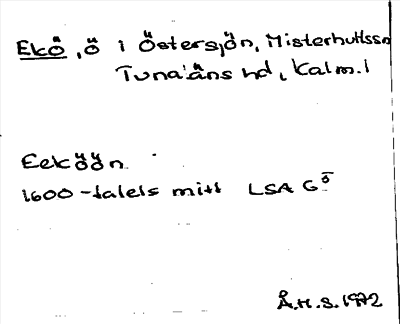 Ekö, ö i Östersjön, Misterhultssn
Tunaläns hd, Kalm. l
Eeköön
1600-talets mitt LSA G ō
Å.H.S. 1972